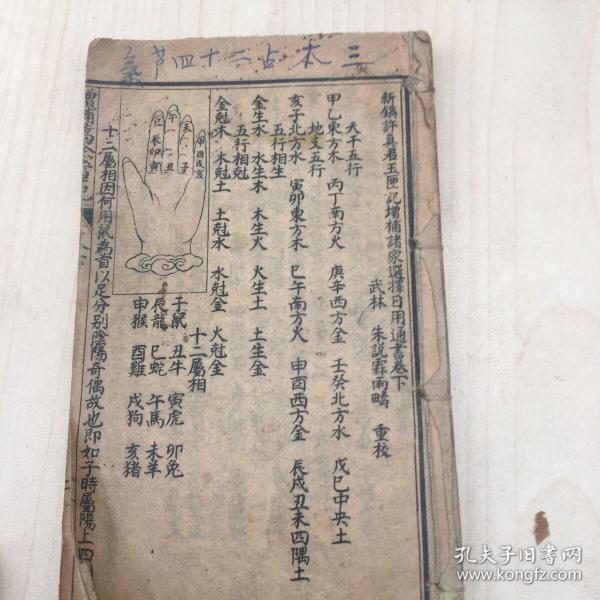 三本占六十四芦
新鐫許真君玉匣記增補諸家選擇日用通書卷下
武林 朱説霖雨疇 重校
天干五行
甲乙東方木 丙丁南方火 庚辛西方金 壬癸北方水 戊巳中央土
地支五行
亥子北方水 寅卯東方木 巳午南方火 申酉西方金 辰戌丑未四隅土
五行相生
金生水 水生木 木生火 火生土 土生金
五行相尅
金尅木 木尅土 土尅水 水尅金 火尅金
十二屬相
子鼠 丑牛 寅虎 卯免
辰龍 巳蛇 午馬 未羊
申猴 酉雞 戌狗 亥猪
申酉戌亥
未 子
午 丑
巳辰卯寅
十二屬相因何用鼠為首以足分别陰陽奇偶故也即如子時屬陽上四
孔夫子旧书网
www.kongfz.com